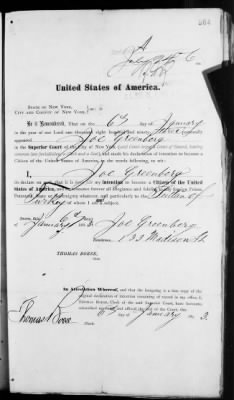 United States of America.
STATE OF NEW YORK,
CITY AND COUNTY OF NEW YORK,
Be it Remembered, That on the 6th day of January
in the year of our Lord one thousand eight hundred and ninety three personally
appeared Joe Greenberg
in the Superior Court of the City of New York
and made his declaration of intention to become a
Citizen of the United States of America, in the words following, to wit:
I, Joe Greenberg
do declare on oath that it is bona fide my Intention to become a Citizen of the United
States of America, and to renounce forever all allegiance and fidelity to any foreign Prince,
Potentate, State or Sovereignty whatever, and particularly to the Sultan of
Turkey of whom I am a subject.
Sworn, this 6th day
January 1893
Joe Greenberg
Residence, 133 Madison St
THOMAS BOESE,
Clerk.
In Attestation Whereof, and that the foregoing is a true copy of the
original declaration of intention remaining of record in my office, I,
THOMAS BOESE, Clerk of the said Superior Court, have hereunto
subscribed my name and affixed the seal of the said Court, the
6th day of January 3.
Thomas Boese
Clerk.